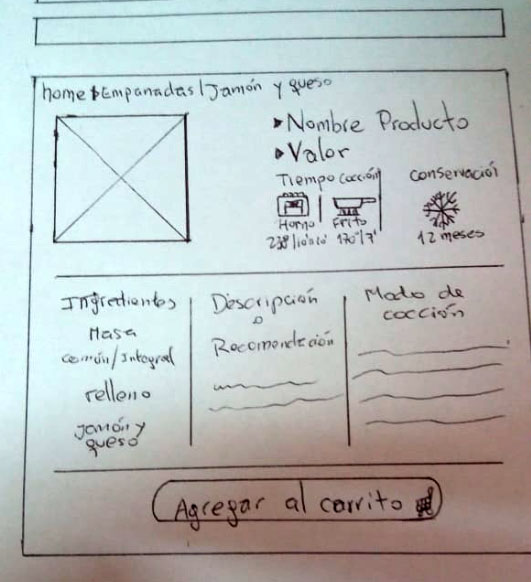 home | Empanadas | Jamón y queso
Nombre Producto
Valor
Tiempo Cocción
Conservación
Horno
Frito
170°/7'
12 meses
Ingredientes
Masa
común/Integral
relleno
jamón y
queso
Descripción
o
Recomendación
Modo de
cocción
Agregar al carrito